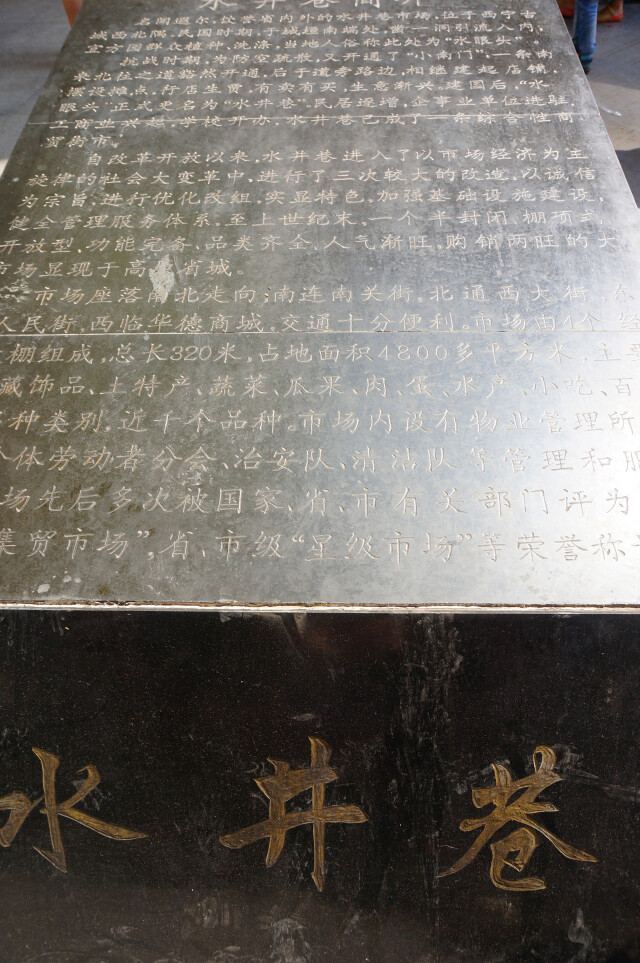 水井巷简介
名闻遐尔,饮誉省内外的水井巷市场,位于西宁古
城西北隅,民国时期,于城垣南端处,凿一洞引流入内,
宜方圆群众植种、洗涤,当地人俗称此处为“水眼头”。
抗战时期,为防空疏散,又开通了“小南门”,一条南
来北往之道豁然开通,后于道旁路边,相继建起店铺,
摆设摊点,行店生贾,有卖有买,生意渐兴。建国后,“水
眼头”正式更名为“水井巷”,民居逐增,企事业单位进驻,
工商业兴起,学校开办,水井巷已成了一条综合性商
贸街市。
自改革开放以来,水井巷进入了以市场经济为主
旋律的社会大变革中,进行了三次较大的改造,以诚信
为宗旨,进行优化改组,突显特色,加强基础设施建设,
健全管理服务体系,至上世纪末,一个半封闭、棚顶式、
开放型,功能完备、品类齐全、人气渐旺、购销两旺的大
市场显现于高原省城。
市场座落南北走向;南连南关街,北通西大街,东
人民街,西临华德商城,交通十分便利。市场由4个经
大棚组成,总长320米,占地面积4800多平方米,主要
藏饰品、土特产、蔬菜、瓜果、肉、蛋、水产、小吃、百
种类别,近千个品种。市场内设有物业管理所
个体劳动者分会、治安队、清洁队等管理和服
场先后多次被国家、省、市有关部门评为
集贸市场”,省、市级“星级市场”等荣誉称号
水井巷